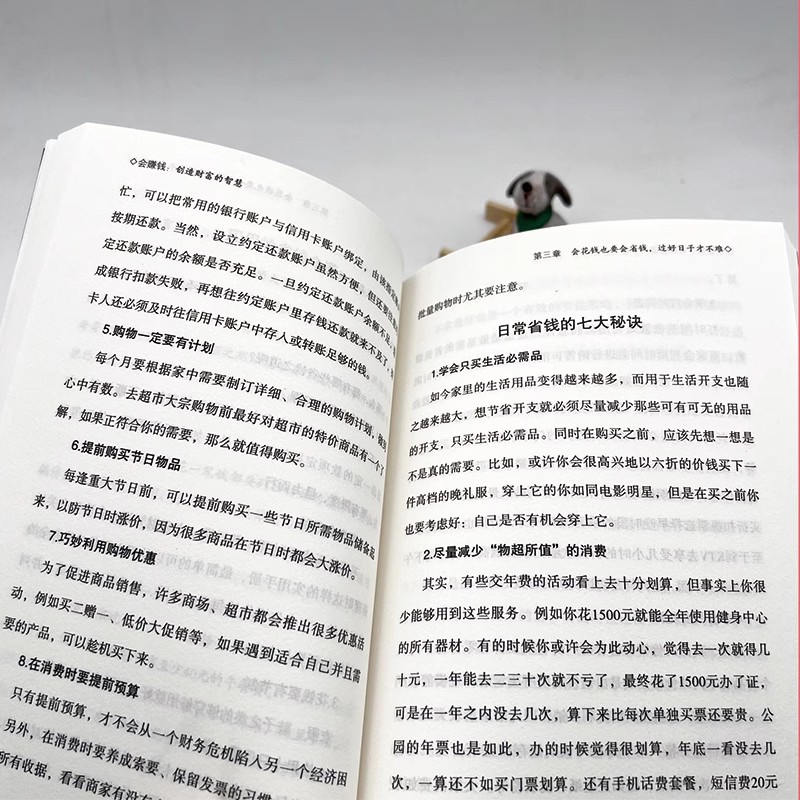 ◇会赚钱：创造财富的智慧
忙，可以把常用的银行账户与信用卡账户绑定，由
按期还款。当然，设立约定还款账户虽然方便，但还要
定还款账户的余额是否充足。一旦约定还款账户余额不足，
成银行扣款失败，再想往约定账户里存钱还款就来不及了，
卡人还必须及时往信用卡账户中存入或转账足够的钱。
5.购物一定要有计划
每个月要根据家中需要制订详细、合理的购物计划，
心中有数。去超市大宗购物前最好对超市的特价商品有一个了
解，如果正符合你的需要，那么就值得购买。
6.提前购买节日物品
每逢重大节日前，可以提前购买一些节日所需物品储备起
来，以防节日时涨价，因为很多商品在节日时都会大涨价。
7.巧妙利用购物优惠
为了促进商品销售，许多商场、超市都会推出很多优惠活
动，例如买二赠一、低价大促销等，如果遇到适合自己并且需
要的产品，可以趁机买下来。
8.在消费时要提前预算
只有提前预算，才不会从一个财务危机陷入另一个经济困
另外，在消费时要养成索要、保留发票的习惯
所有收据，看看商家有没有
第三章 会花钱也要会省钱，过好日子才不难◇
批量购物时尤其要注意。
日常省钱的七大秘诀
1.学会只买生活必需品
如今家里的生活用品变得越来越多，而用于生活开支也随
之越来越大，想节省开支就必须尽量减少那些可有可无的用品
的开支，只买生活必需品。同时在购买之前，应该先想一想是
不是真的需要。比如，或许你会很高兴地以六折的价钱买下一
件高档的晚礼服，穿上它的你如同电影明星，但是在买之前你
也要考虑好：自己是否有机会穿上它。
2.尽量减少“物超所值”的消费
其实，有些交年费的活动看上去十分划算，但事实上你很
少能够用到这些服务。例如你花1500元就能全年使用健身中心
的所有器材。有的时候你或许会为此动心，觉得去一次就得几
十元，一年能去二三十次就不亏了，最终花了1500元办了证，
可是在一年之内没去几次，算下来比每次单独买票还要贵。公
园的年票也是如此，办的时候觉得很划算，年底一看没去几
次，一算还不如买门票划算。还有手机话费套餐，短信费20元